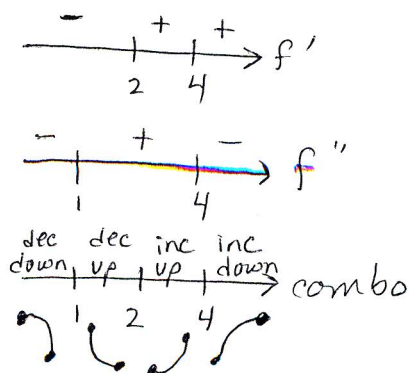 − + +
2 4 f'
− + −
1 4 f"
dec dec inc inc
down up up down
combo
1 2 4